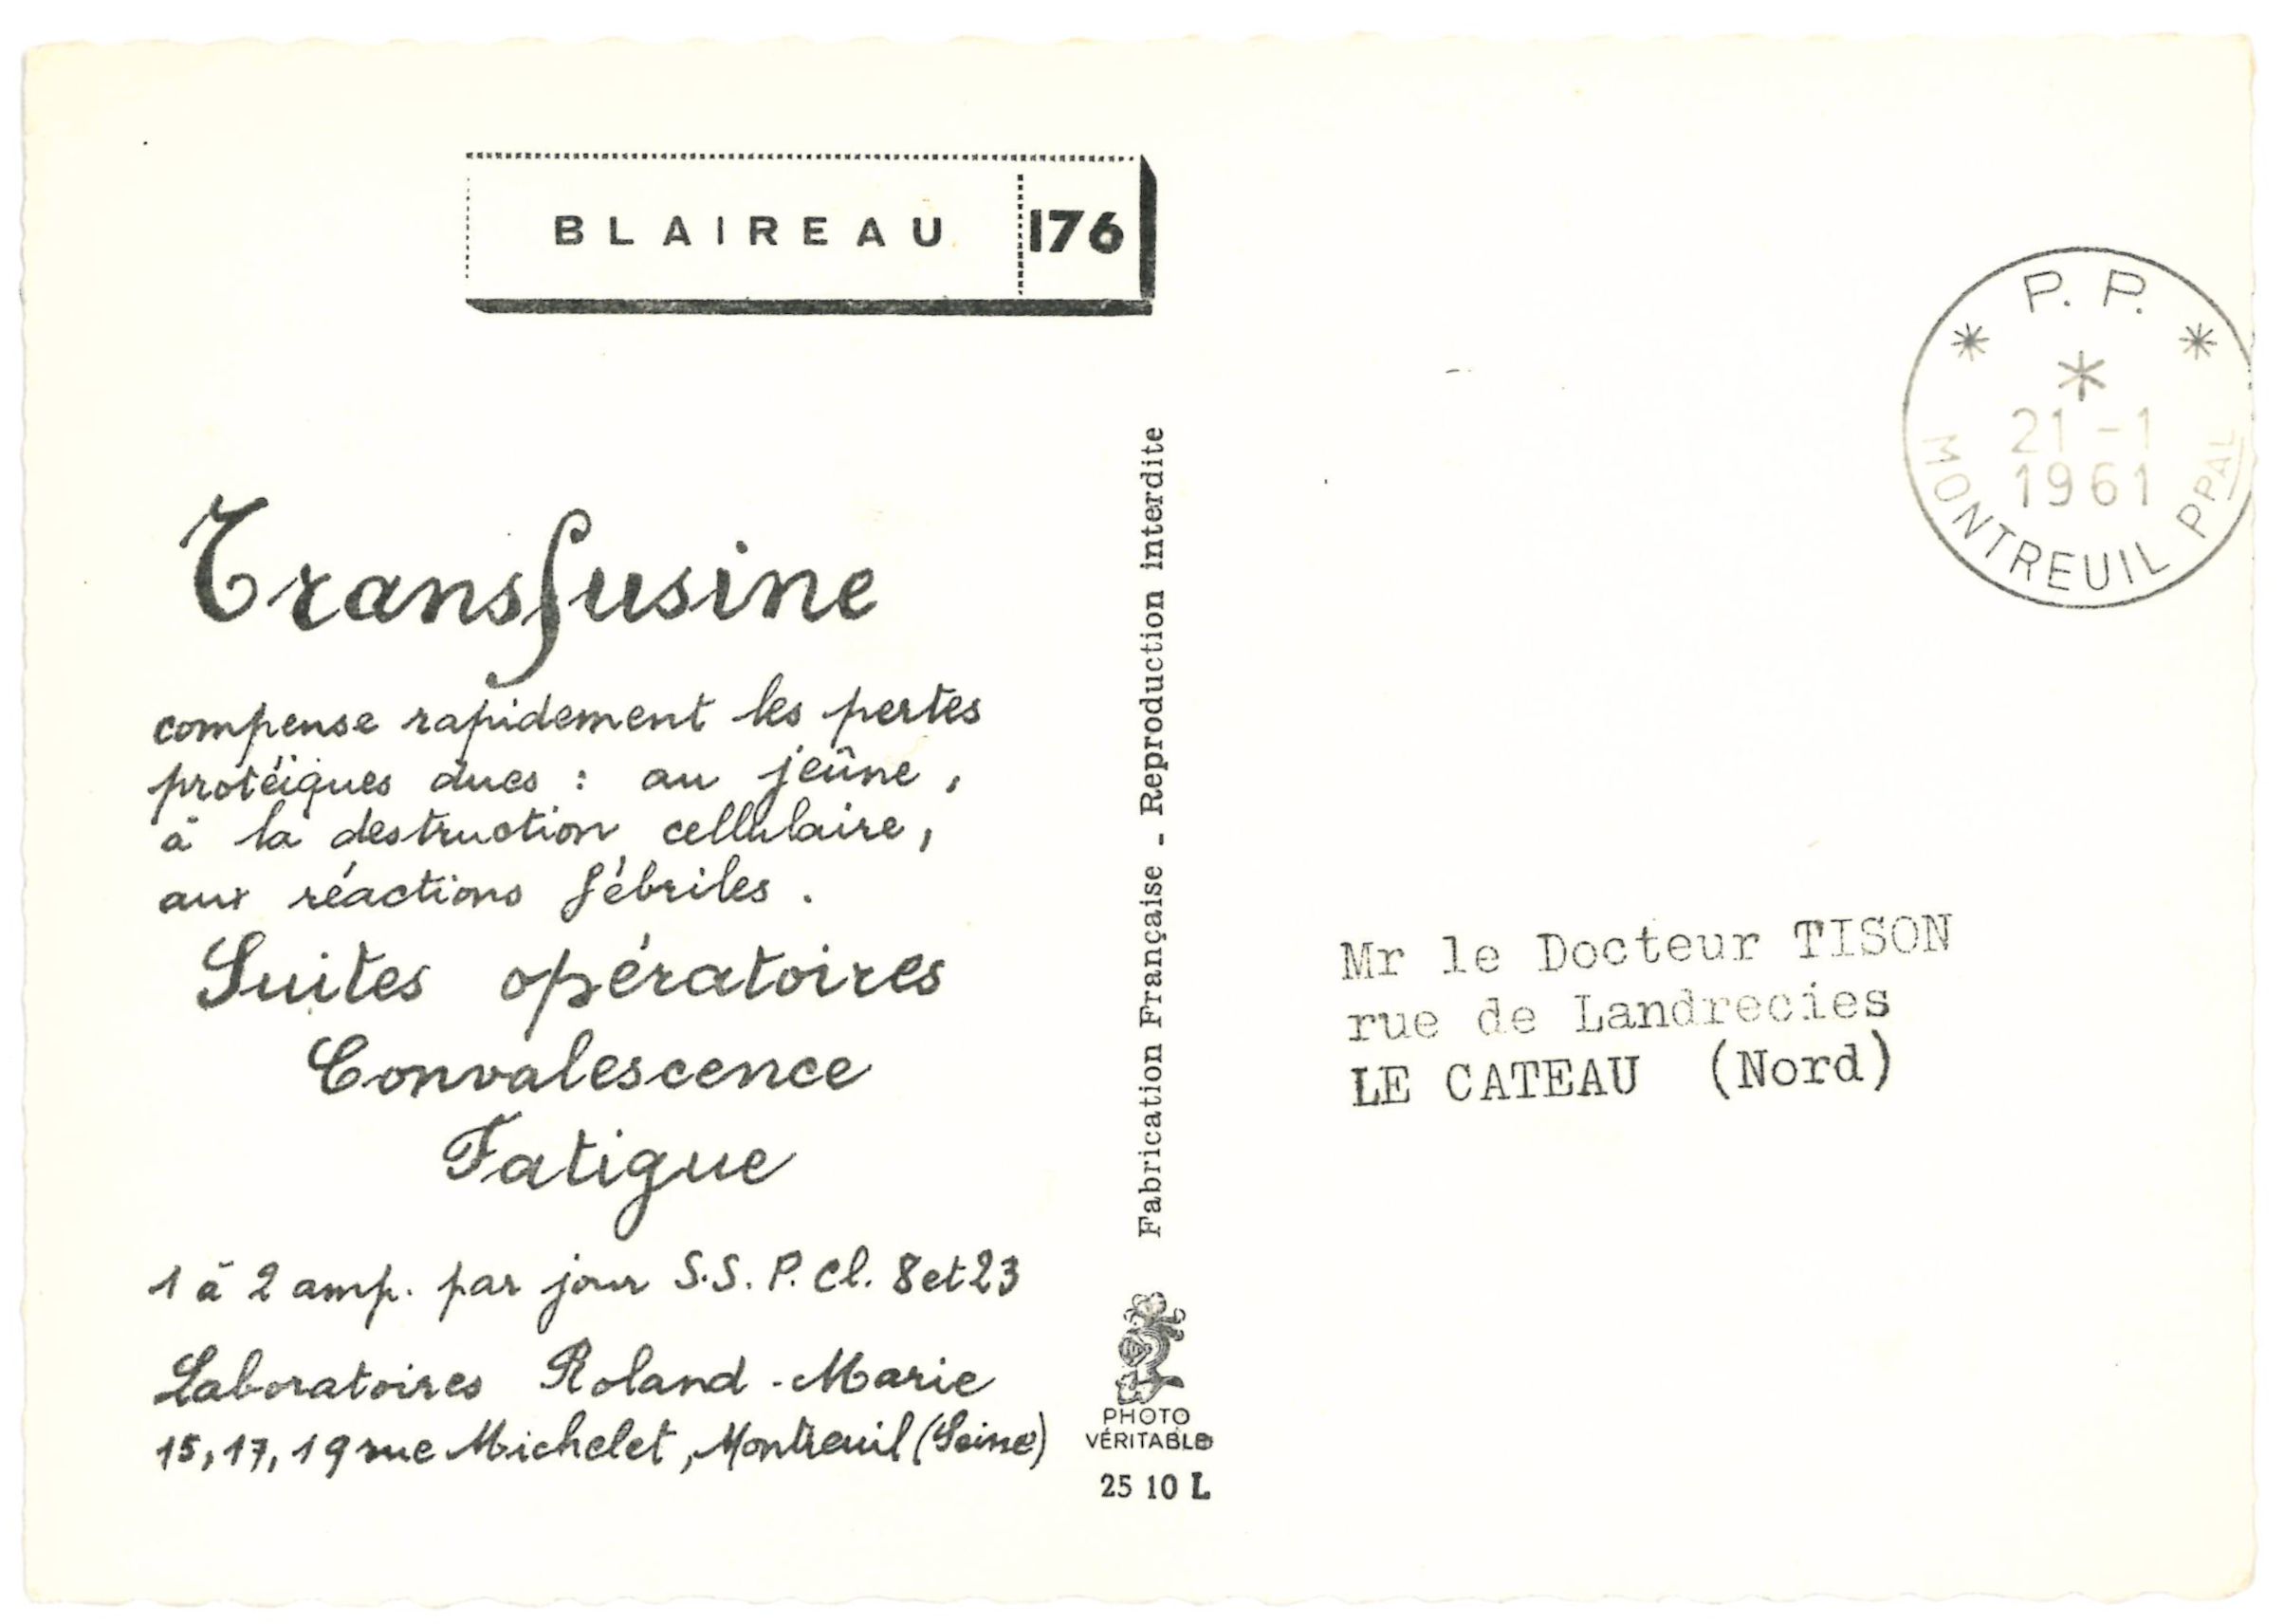 BLAIREAU 176
Transfusine
compense rapidement les pertes
protéiques dues : au jeûne,
à la destruction cellulaire,
aux réactions fébriles.
Suites opératoires
Convalescence
Fatigue
1 à 2 amp. par jour S.S. P. Cl. 8 et 23
Laboratoires Roland-Marie
15, 17, 19 rue Michelet, Montreuil (Seine)
Fabrication Française - Reproduction interdite
PHOTO
VÉRITABLE
25 10 L
P. P.
21 - 1
1961
MONTREUIL PPAL
Mr le Docteur TISON
rue de Landrecies
LE CATEAU (Nord)